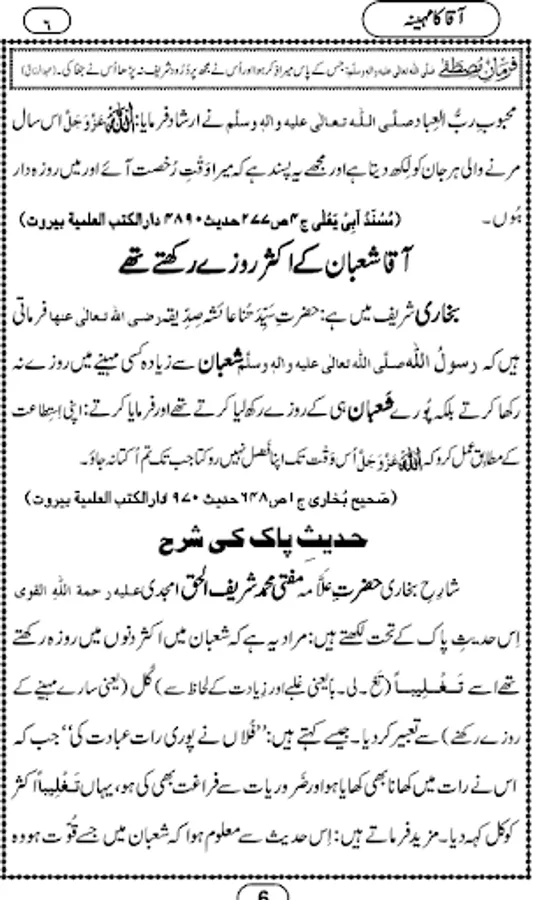 آقا کا مہینہ
٦
فرمانِ مصطفےٰ صلی اللہ تعالٰی علیہ والہ وسلم: جس کے پاس میرا ذکر ہوا اور اُس نے مجھ پر دُرُود شریف نہ پڑھا اُس نے جفا کی۔ (عبدالرزاق)
محبوبِ ربُّ العباد صلَّی اللہ تعالٰی علیہ والہٖ وسلَّم نے ارشاد فرمایا: اللہ عَزَّوَجَلَّ اس سال
مرنے والی ہر جان کو لکھ دیتا ہے اور مجھے یہ پسند ہے کہ میرا وَقتِ رُخصت آئے اور میں روزہ دار
ہُوں۔ (مُسْنَدُ اَبِیْ یَعْلٰی ج ٤ ص ٢٧٧ حدیث ٤٨٩٠ دارالکتب العلمیة بیروت)
آقا شعبان کے اکثر روزے رکھتے تھے
بخاری شریف میں ہے: حضرتِ سیِّدَتُنا عائشہ صِدّیقہ رضی اللہ تعالٰی عنہا فرماتی
ہیں کہ رسولُ اللہ صلَّی اللہ تعالٰی علیہ والہٖ وسلَّم شعبان سے زیادہ کسی مہینے میں روزے نہ
رکھا کرتے بلکہ پُورے شَعبان ہی کے روزے رکھ لیا کرتے تھے اور فرمایا کرتے: اپنی اِستِطاعت
کے مطابِق عمل کرو کہ اللہ عَزَّوَجَلَّ اُس وَقْت تک اپنا فَضل نہیں روکتا جب تک تم اُکتا نہ جاؤ۔
(صَحیح بُخاری ج ١ ص ٦٤٨ حدیث ١٩٧٠ دارالکتب العلمیة بیروت)
حدیثِ پاک کی شرح
شارِحِ بخاری حضرتِ علّامہ مفتی محمد شریفُ الحق امجدی علیہ رحمۃ اللہ القوی
اِس حدیثِ پاک کے تحت لکھتے ہیں: مراد یہ ہے کہ شعبان میں اکثر دنوں میں روزہ رکھتے
تھے اسے تَغْلِیباً (تَغ۔لی۔باً یعنی غلبے اور زِیادت کے لحاظ سے) کُل (یعنی سارے مہینے کے
روزے رکھنے) سے تعبیر کر دیا۔ جیسے کہتے ہیں: ’’فُلاں نے پوری رات عبادت کی‘‘ جب کہ
اس نے رات میں کھانا بھی کھایا ہو اور ضَروریات سے فراغت بھی کی ہو، یہاں تَغْلِیباً اکثر
کو کل کہہ دیا۔ مزید فرماتے ہیں: اِس حدیث سے معلوم ہوا کہ شعبان میں جسے قُوّت ہو وہ
6